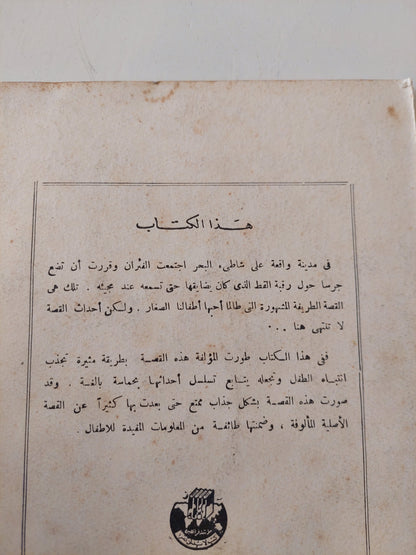 هذا الكتاب
فى مدينة واقعة على شاطىء البحر اجتمعت الفئران وقررت أن تضع
جرسا حول رقبة القط الذى كان يضايقها حتى تسمعه عند مجيئه . تلك هى
القصة الطريفة المشهورة التى طالما أحبها أطفالنا الصغار . ولكن أحداث القصة
لا تنتهى هنا ...
ففى هذا الكتاب طورت المؤلفة هذه القصة بطريقة مثيرة تجذب
انتباه الطفل وتجعله يتابع تسلسل أحداثها بحماسة بالغة . وقد
صورت هذه القصة بشكل جذاب ممتع حتى بعدت بها كثيراً عن القصة
الأصلية المألوفة ، وضمنتها طائفة من المعلومات المفيدة للاطفال .